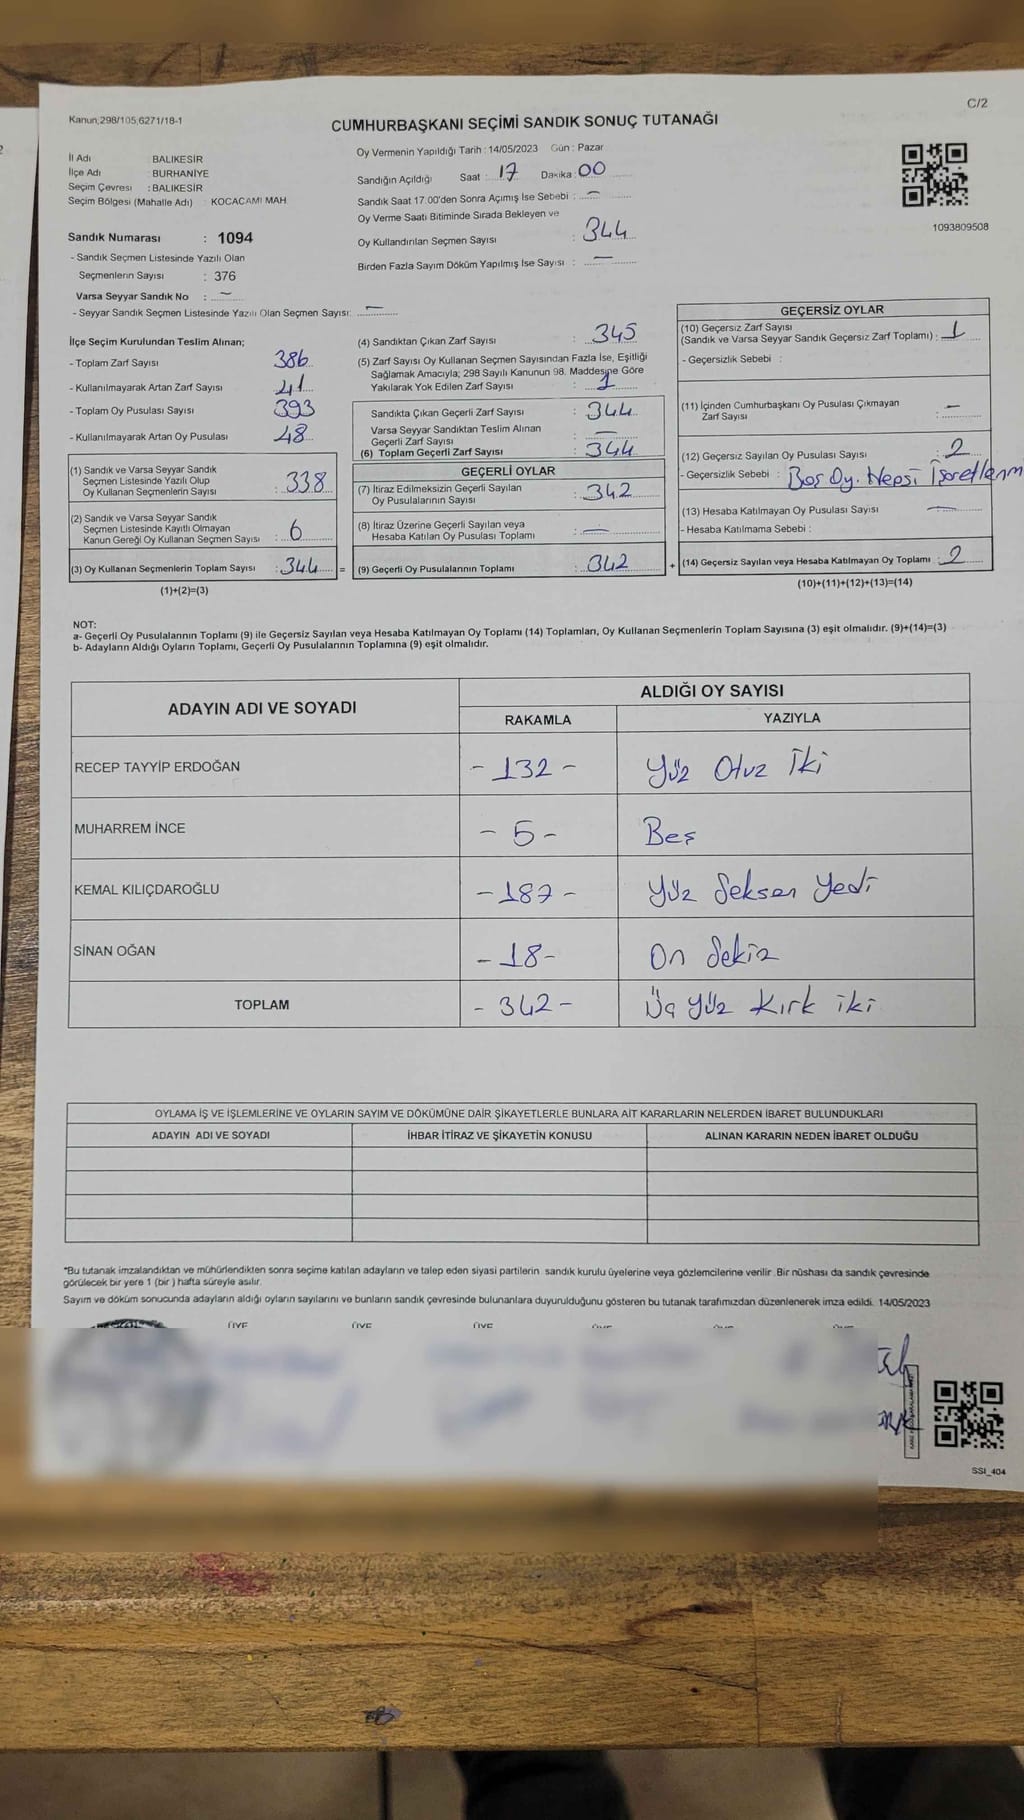 C/2
Kanun;298/105,6271/18-1
CUMHURBAŞKANI SEÇİMİ SANDIK SONUÇ TUTANAĞI
İl Adı BALIKESİR
İlçe Adı : BURHANİYE
Seçim Çevresi : BALIKESİR
Seçim Bölgesi (Mahalle Adı) : KOCACAMİ MAH
Oy Vermenin Yapıldığı Tarih : 14/05/2023 Gün : Pazar
Sandığın Açıldığı Saat : 17 Dakika : 00
Sandık Saat 17.00'den Sonra Açımış İse Sebebi : —
Oy Verme Saati Bitiminde Sırada Bekleyen ve
Oy Kullandırılan Seçmen Sayısı : 344
Birden Fazla Sayım Döküm Yapılmış İse Sayısı : —
1093809508
Sandık Numarası : 1094
- Sandık Seçmen Listesinde Yazılı Olan
Seçmenlerin Sayısı : 376
Varsa Seyyar Sandık No : —
- Seyyar Sandık Seçmen Listesinde Yazılı Olan Seçmen Sayısı: —
İlçe Seçim Kurulundan Teslim Alınan;
- Toplam Zarf Sayısı 386
- Kullanılmayarak Artan Zarf Sayısı 41
- Toplam Oy Pusulası Sayısı 393
- Kullanılmayarak Artan Oy Pusulası 48
(1) Sandık ve Varsa Seyyar Sandık
Seçmen Listesinde Yazılı Olup
Oy Kullanan Seçmenlerin Sayısı : 338
(2) Sandık ve Varsa Seyyar Sandık
Seçmen Listesinde Kayıtlı Olmayan
Kanun Gereği Oy Kullanan Seçmen Sayısı : 6
(3) Oy Kullanan Seçmenlerin Toplam Sayısı : 344 =
(1)+(2)=(3)
(4) Sandıktan Çıkan Zarf Sayısı : 345
(5) Zarf Sayısı Oy Kullanan Seçmen Sayısından Fazla İse, Eşitliği
Sağlamak Amacıyla; 298 Sayılı Kanunun 98. Maddesine Göre
Yakılarak Yok Edilen Zarf Sayısı : 1
Sandıkta Çıkan Geçerli Zarf Sayısı : 344
Varsa Seyyar Sandıktan Teslim Alınan
Geçerli Zarf Sayısı : —
(6) Toplam Geçerli Zarf Sayısı : 344
GEÇERLİ OYLAR
(7) İtiraz Edilmeksizin Geçerli Sayılan
Oy Pusulalarının Sayısı : 342
(8) İtiraz Üzerine Geçerli Sayılan veya
Hesaba Katılan Oy Pusulası Toplamı : —
(9) Geçerli Oy Pusulalarının Toplamı : 342 +
GEÇERSİZ OYLAR
(10) Geçersiz Zarf Sayısı
(Sandık ve Varsa Seyyar Sandık Geçersiz Zarf Toplamı) : 1
- Geçersizlik Sebebi :
(11) İçinden Cumhurbaşkanı Oy Pusulası Çıkmayan
Zarf Sayısı : —
(12) Geçersiz Sayılan Oy Pusulası Sayısı : 2
- Geçersizlik Sebebi : Boş Oy. Hepsi İşaretlenm
(13) Hesaba Katılmayan Oy Pusulası Sayısı : —
- Hesaba Katılmama Sebebi :
(14) Geçersiz Sayılan veya Hesaba Katılmayan Oy Toplamı : 2
(10)+(11)+(12)+(13)=(14)
NOT:
a- Geçerli Oy Pusulalarının Toplamı (9) ile Geçersiz Sayılan veya Hesaba Katılmayan Oy Toplamı (14) Toplamları, Oy Kullanan Seçmenlerin Toplam Sayısına (3) eşit olmalıdır. (9)+(14)=(3)
b- Adayların Aldığı Oyların Toplamı, Geçerli Oy Pusulalarının Toplamına (9) eşit olmalıdır.
ADAYIN ADI VE SOYADI ALDIĞI OY SAYISI
RAKAMLA YAZIYLA
RECEP TAYYİP ERDOĞAN - 132 - Yüz Otuz İki
MUHARREM İNCE - 5 - Beş
KEMAL KILIÇDAROĞLU - 187 - Yüz Seksen Yedi
SİNAN OĞAN - 18 - On Sekiz
TOPLAM - 342 - Üç Yüz Kırk iki
OYLAMA İŞ VE İŞLEMLERİNE VE OYLARIN SAYIM VE DÖKÜMÜNE DAİR ŞİKAYETLERLE BUNLARA AİT KARARLARIN NELERDEN İBARET BULUNDUKLARI
ADAYIN ADI VE SOYADI İHBAR İTİRAZ VE ŞİKAYETİN KONUSU ALINAN KARARIN NEDEN İBARET OLDUĞU
*Bu tutanak imzalandıktan ve mühürlendikten sonra seçime katılan adayların ve talep eden siyasi partilerin sandık kurulu üyelerine veya gözlemcilerine verilir. Bir nüshası da sandık çevresinde
görülecek bir yere 1 (bir ) hafta süreyle asılır.
Sayım ve döküm sonucunda adayların aldığı oyların sayılarını ve bunların sandık çevresinde bulunanlara duyurulduğunu gösteren bu tutanak tarafımızdan düzenlenerek imza edildi. 14/05/2023
ÜYE ÜYE ÜYE
SSI_404